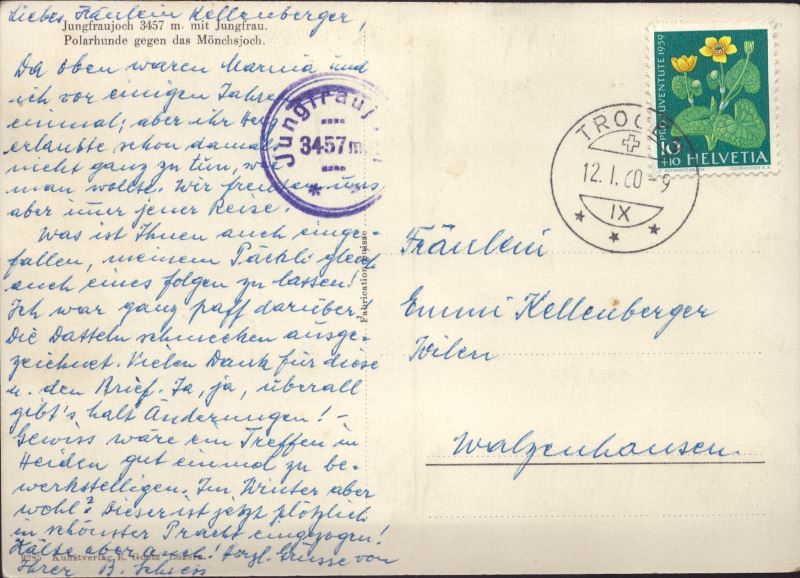 Liebes Fräulein Kellenberger,
Jungfraujoch 3457 m. mit Jungfrau.
Polarhunde gegen das Mönchsjoch.
Da oben waren Marnia und
ich vor einigen Jahren
einmal; aber ihr Herz
erlaubte schon damals
nicht ganz zu tun, wie
man wollte. Wir freuten uns
aber imer jener Reise!
Was ist Ihnen auch einge-
fallen, meinem Päckli gleich
auch eines folgen zu lassen!
Ich war ganz paff darüber.
Die Datteln schmecken ausge-
zeichnet. Vielen Dank für diese
u. den Brief. Ja, ja, überall
gibt's halt Änderungen! -
Gewiss wäre ein Treffen in
Heiden gut einmal zu be-
werkstelligen. Im Winter aber
wohl? Dieser ist jetzt plötzlich
in schönster Pracht eingezogen!
Kälte aber auch! Herzl. Grüsse von
9285 Kunstverlag E. Goetz Luzern
Ihrer B. Schiess
Jungfrauj
3457 m.
Fabrication suisse
TROGEN
12. I. 60 - 9
IX
PRO JUVENTUTE 1959
10
+10 HELVETIA
COURVOISIER S.A.
Fräulein
Emmi Kellenberger
Wilen
Walzenhausen.